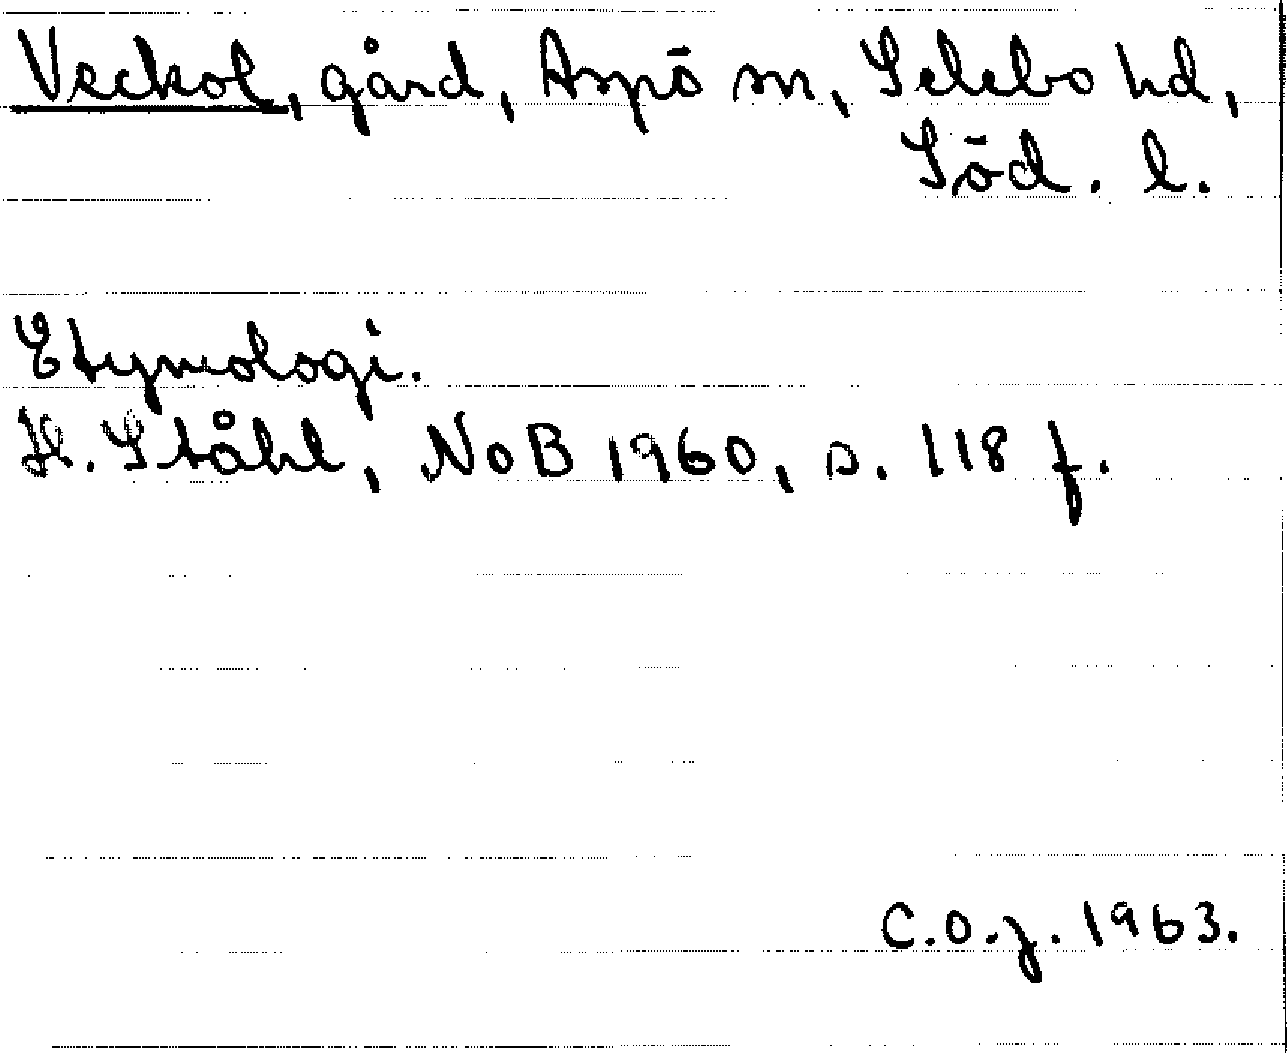 Veckol, gård, Aspö sn, Selebo hd,
Söd. l.
Etymologi.
H. Ståhl, NoB 1960, s. 118 f.
C.O.J. 1963.